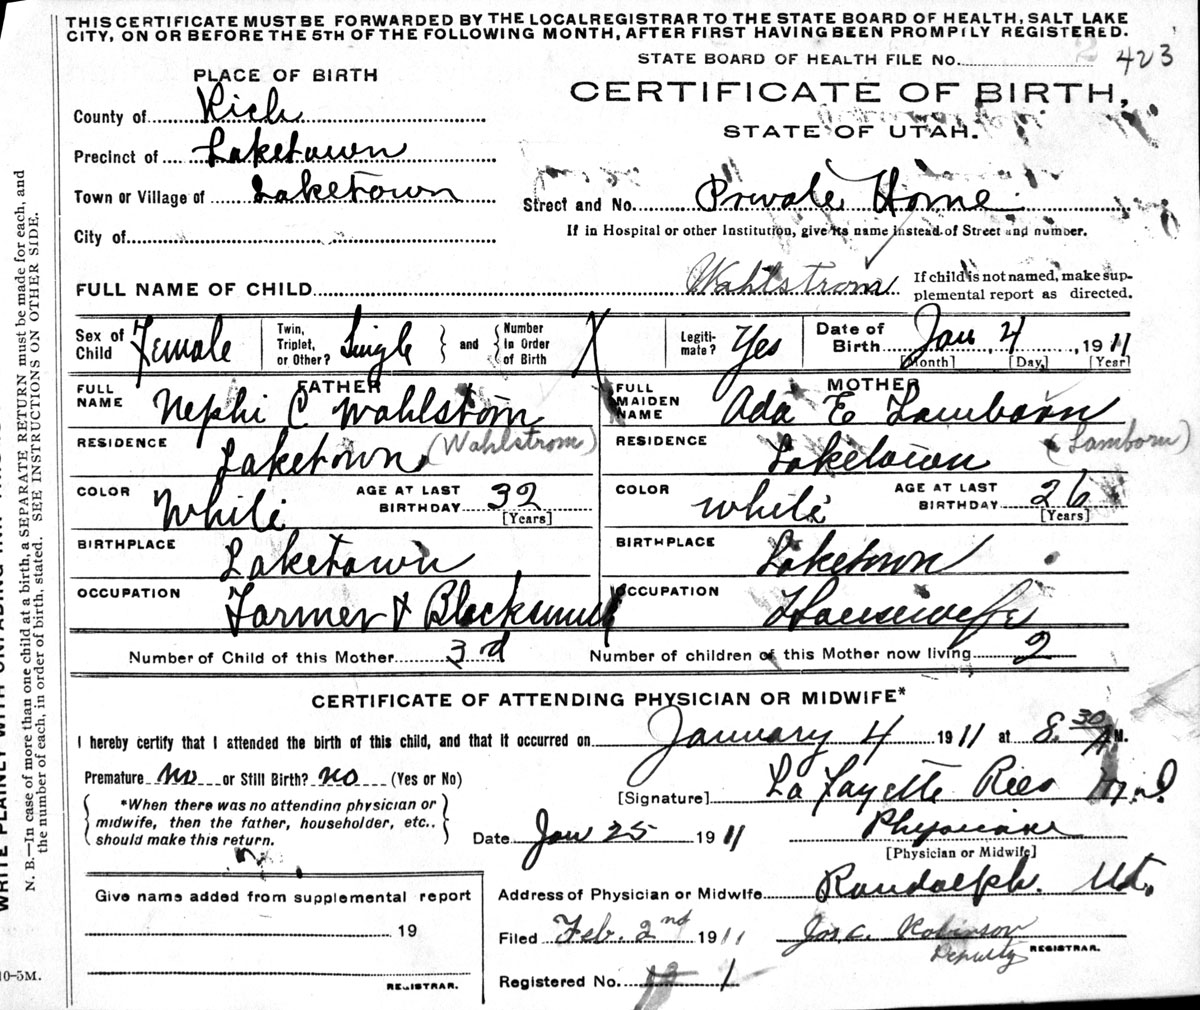 THIS CERTIFICATE MUST BE FORWARDED BY THE LOCAL REGISTRAR TO THE STATE BOARD OF HEALTH, SALT LAKE
CITY, ON OR BEFORE THE 5TH OF THE FOLLOWING MONTH, AFTER FIRST HAVING BEEN PROMPILY REGISTERED.
STATE BOARD OF HEALTH FILE NO. 2 423
PLACE OF BIRTH
CERTIFICATE OF BIRTH,
STATE OF UTAH.
County of Rich
Precinct of Laketown
Town or Village of Laketown
Street and No. Private Home
City of
If in Hospital or other Institution, give its name instead of Street and number.
FULL NAME OF CHILD Wahlstrom
If child is not named, make sup-
plemental report as directed.
Sex of Child Female
Twin, Triplet, or Other? Single
and Number in Order of Birth X
Legiti-mate? Yes
Date of Birth Jan 4, 1911
[Month] [Day] [Year]
FATHER
MOTHER
FULL NAME Nephi C Wahlstrom
FULL MAIDEN NAME Ada E Lamborn
(Wahlstrom)
(Lamborn)
RESIDENCE Laketown
RESIDENCE Laketown
COLOR White
AGE AT LAST BIRTHDAY 32 [Years]
COLOR white
AGE AT LAST BIRTHDAY 26 [Years]
BIRTHPLACE Laketown
BIRTHPLACE Laketown
OCCUPATION Farmer & Blacksmith
OCCUPATION Housewife
Number of Child of this Mother 3rd
Number of children of this Mother now living 2
CERTIFICATE OF ATTENDING PHYSICIAN OR MIDWIFE*
I hereby certify that I attended the birth of this child, and that it occurred on January 4 1911 at 8.30 A M.
Premature no or Still Birth? no (Yes or No)
[Signature] La Fayette Rees M.D.
*When there was no attending physician or
midwife, then the father, householder, etc..
should make this return.
Date Jan 25 1911
Physician
[Physician or Midwife]
Give name added from supplemental report
19
REGISTRAR.
Address of Physician or Midwife Randolph. Ut.
Filed Feb. 2nd 1911 Jos. C. Robinson
Deputy REGISTRAR.
Registered No. 1
N. B.—In case of more than one child at a birth, a SEPARATE RETURN must be made for each, and
the number of each, in order of birth, stated. SEE INSTRUCTIONS ON OTHER SIDE.
WRITE PLAINLY WITH UNFADING INK
10-5M.